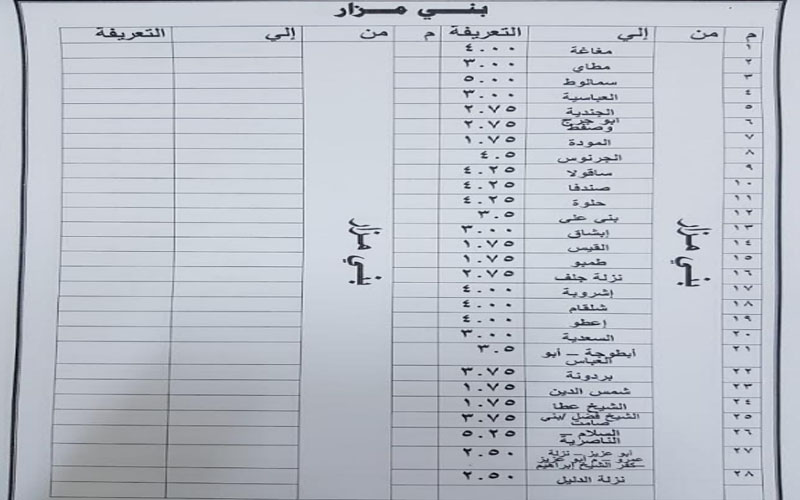 بني مزار
م من إلي التعريفة م من إلي التعريفة
بني مزار بني مزار
١ مغاغة ٤.٠٠
٢ مطاي ٣.٠٠
٣ سمالوط ٥.٠٠
٤ العباسية ٣.٠٠
٥ الجندية ٢.٧٥
٦ ابو جرج وصفط ٢.٧٥
٧ المودة ١.٧٥
٨ الجرنوس ٤.٥
٩ ساقولا ٤.٢٥
١٠ صندفا ٤.٢٥
١١ حلوة ٤.٢٥
١٢ بني عني ٣.٥
١٣ إبشاق ٣.٠٠
١٤ القيس ١.٧٥
١٥ طمبو ١.٧٥
١٦ نزلة جلف ٢.٧٥
١٧ إشروبة ٤.٠٠
١٨ شلقام ٤.٠٠
١٩ إعطو ٤.٠٠
٢٠ السعدية ٣.٠٠
٢١ أبطوجة – أبو العباس ٣.٥
٢٢ بردونة ٣.٧٥
٢٣ شمس الدين ١.٧٥
٢٤ الشيخ عطا ١.٧٥
٢٥ الشيخ فضل /بني صامت ٣.٧٥
٢٦ السلام – الناصرية ٥.٢٥
٢٧ أبو عزيز – نزلة عمرو – م أبو عزيز – كفر الشيخ إبراهيم ٢.٥٠
٢٨ نزلة الدليل ٢.٥٠